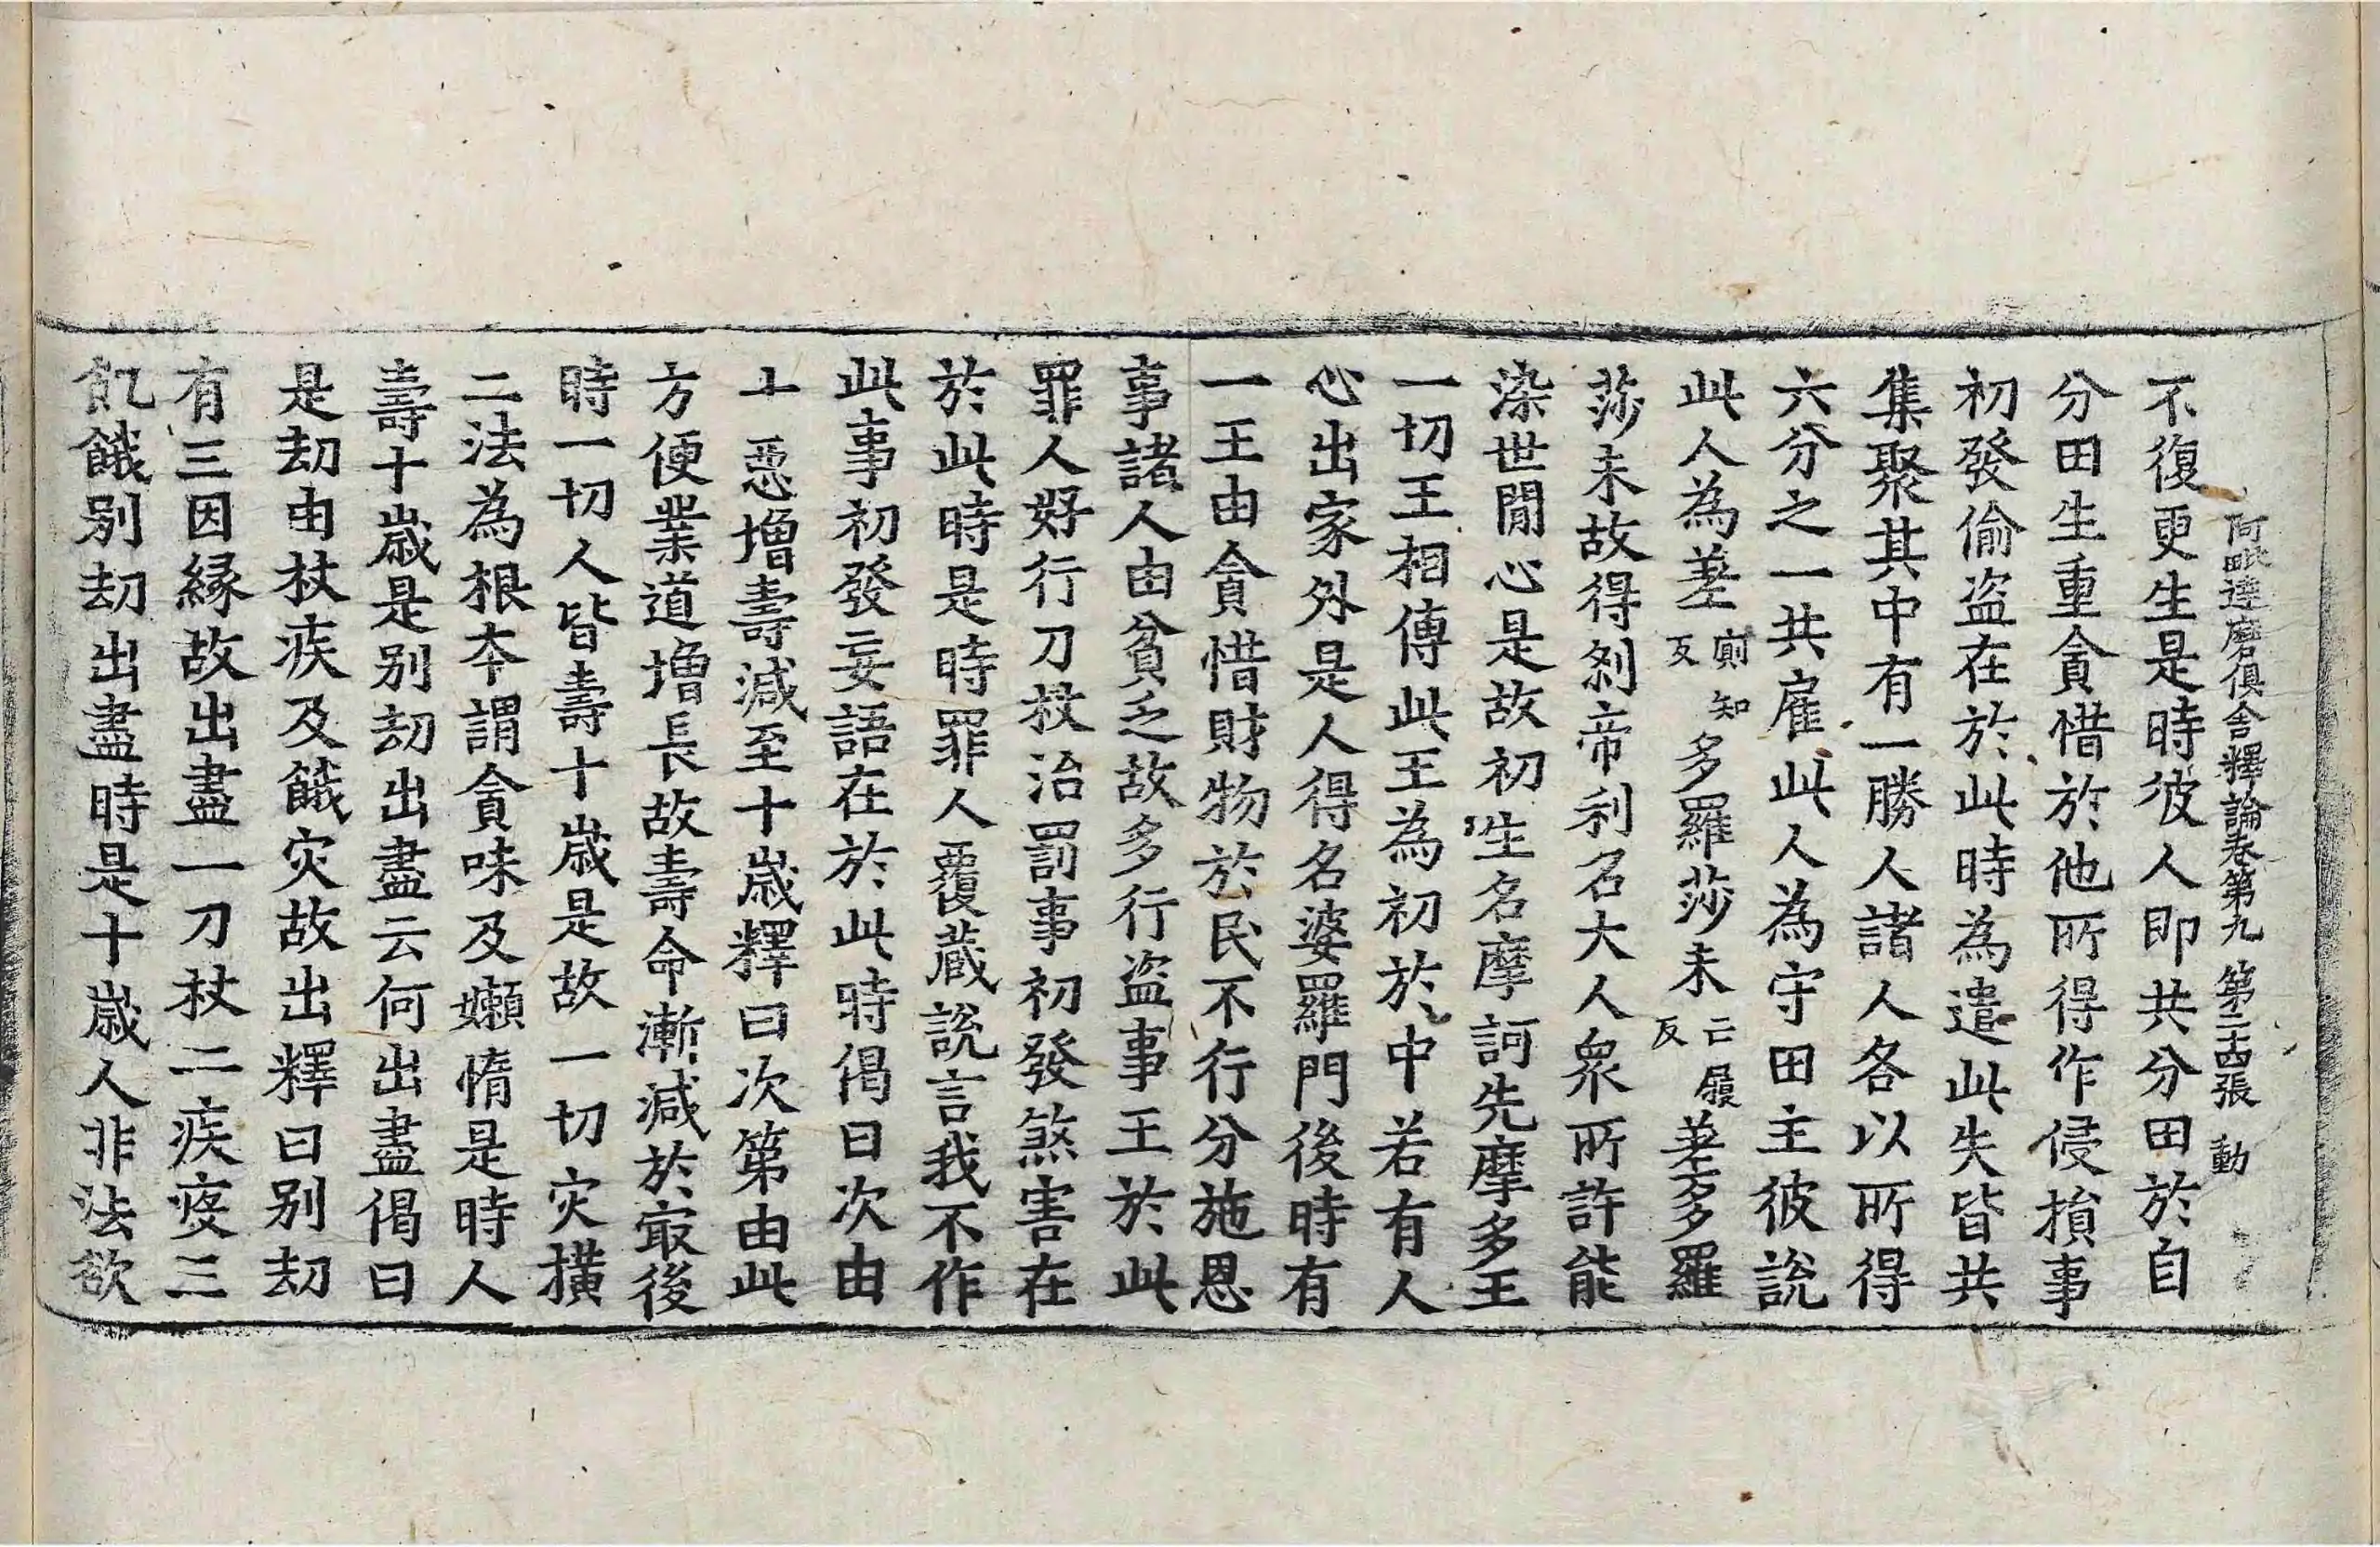 阿毗達磨俱舍釋論卷第九 第二十四張 動
不復更生是時彼人即共分田於自
分田生重貪惜於他所得作侵損事
初發偷盗在於此時為遣此失皆共
集聚其中有一勝人諸人各以所得
六分之一共雇此人為守田主彼說
此人為差廁知反多羅莎未亡履反差多羅
莎未故得剎帝利名大人衆所許能
染世閒心是故初生名摩訶先摩多王
一切王相傳此王為初於中若有人
心出家外是人得名婆羅門後時有
一王由貪惜財物於民不行分施恩
事諸人由貧乏故多行盗事王於此
罪人好行刀杖治罰事初發煞害在
於此時是時罪人覆蔵說言我不作
此事初發妄語在於此時偈曰次由
十惡增壽減至十歲釋曰次第由此
方便業道增長故壽命漸減於㝡後
時一切人皆壽十歲是故一切灾撗
二法為根夲謂貪味及嬾惰是時人
壽十歲是别劫出盡云何出盡偈曰
是劫由杖疾及餓灾故出釋曰别劫
有三因緣故出盡一刀杖二疾疫三
飢餓别劫出盡時是十歲人非法欲